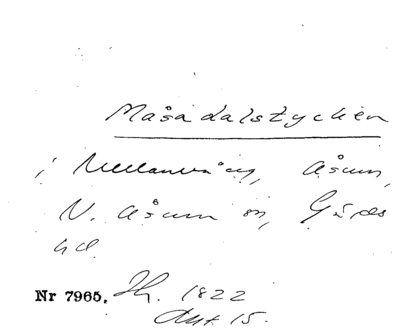 Måsadalstycken
i Mellanvång, Åsum,
N. Åsum sn, Gärds
hd.
Nr 7965. Jh. 1822
Akt. 15.